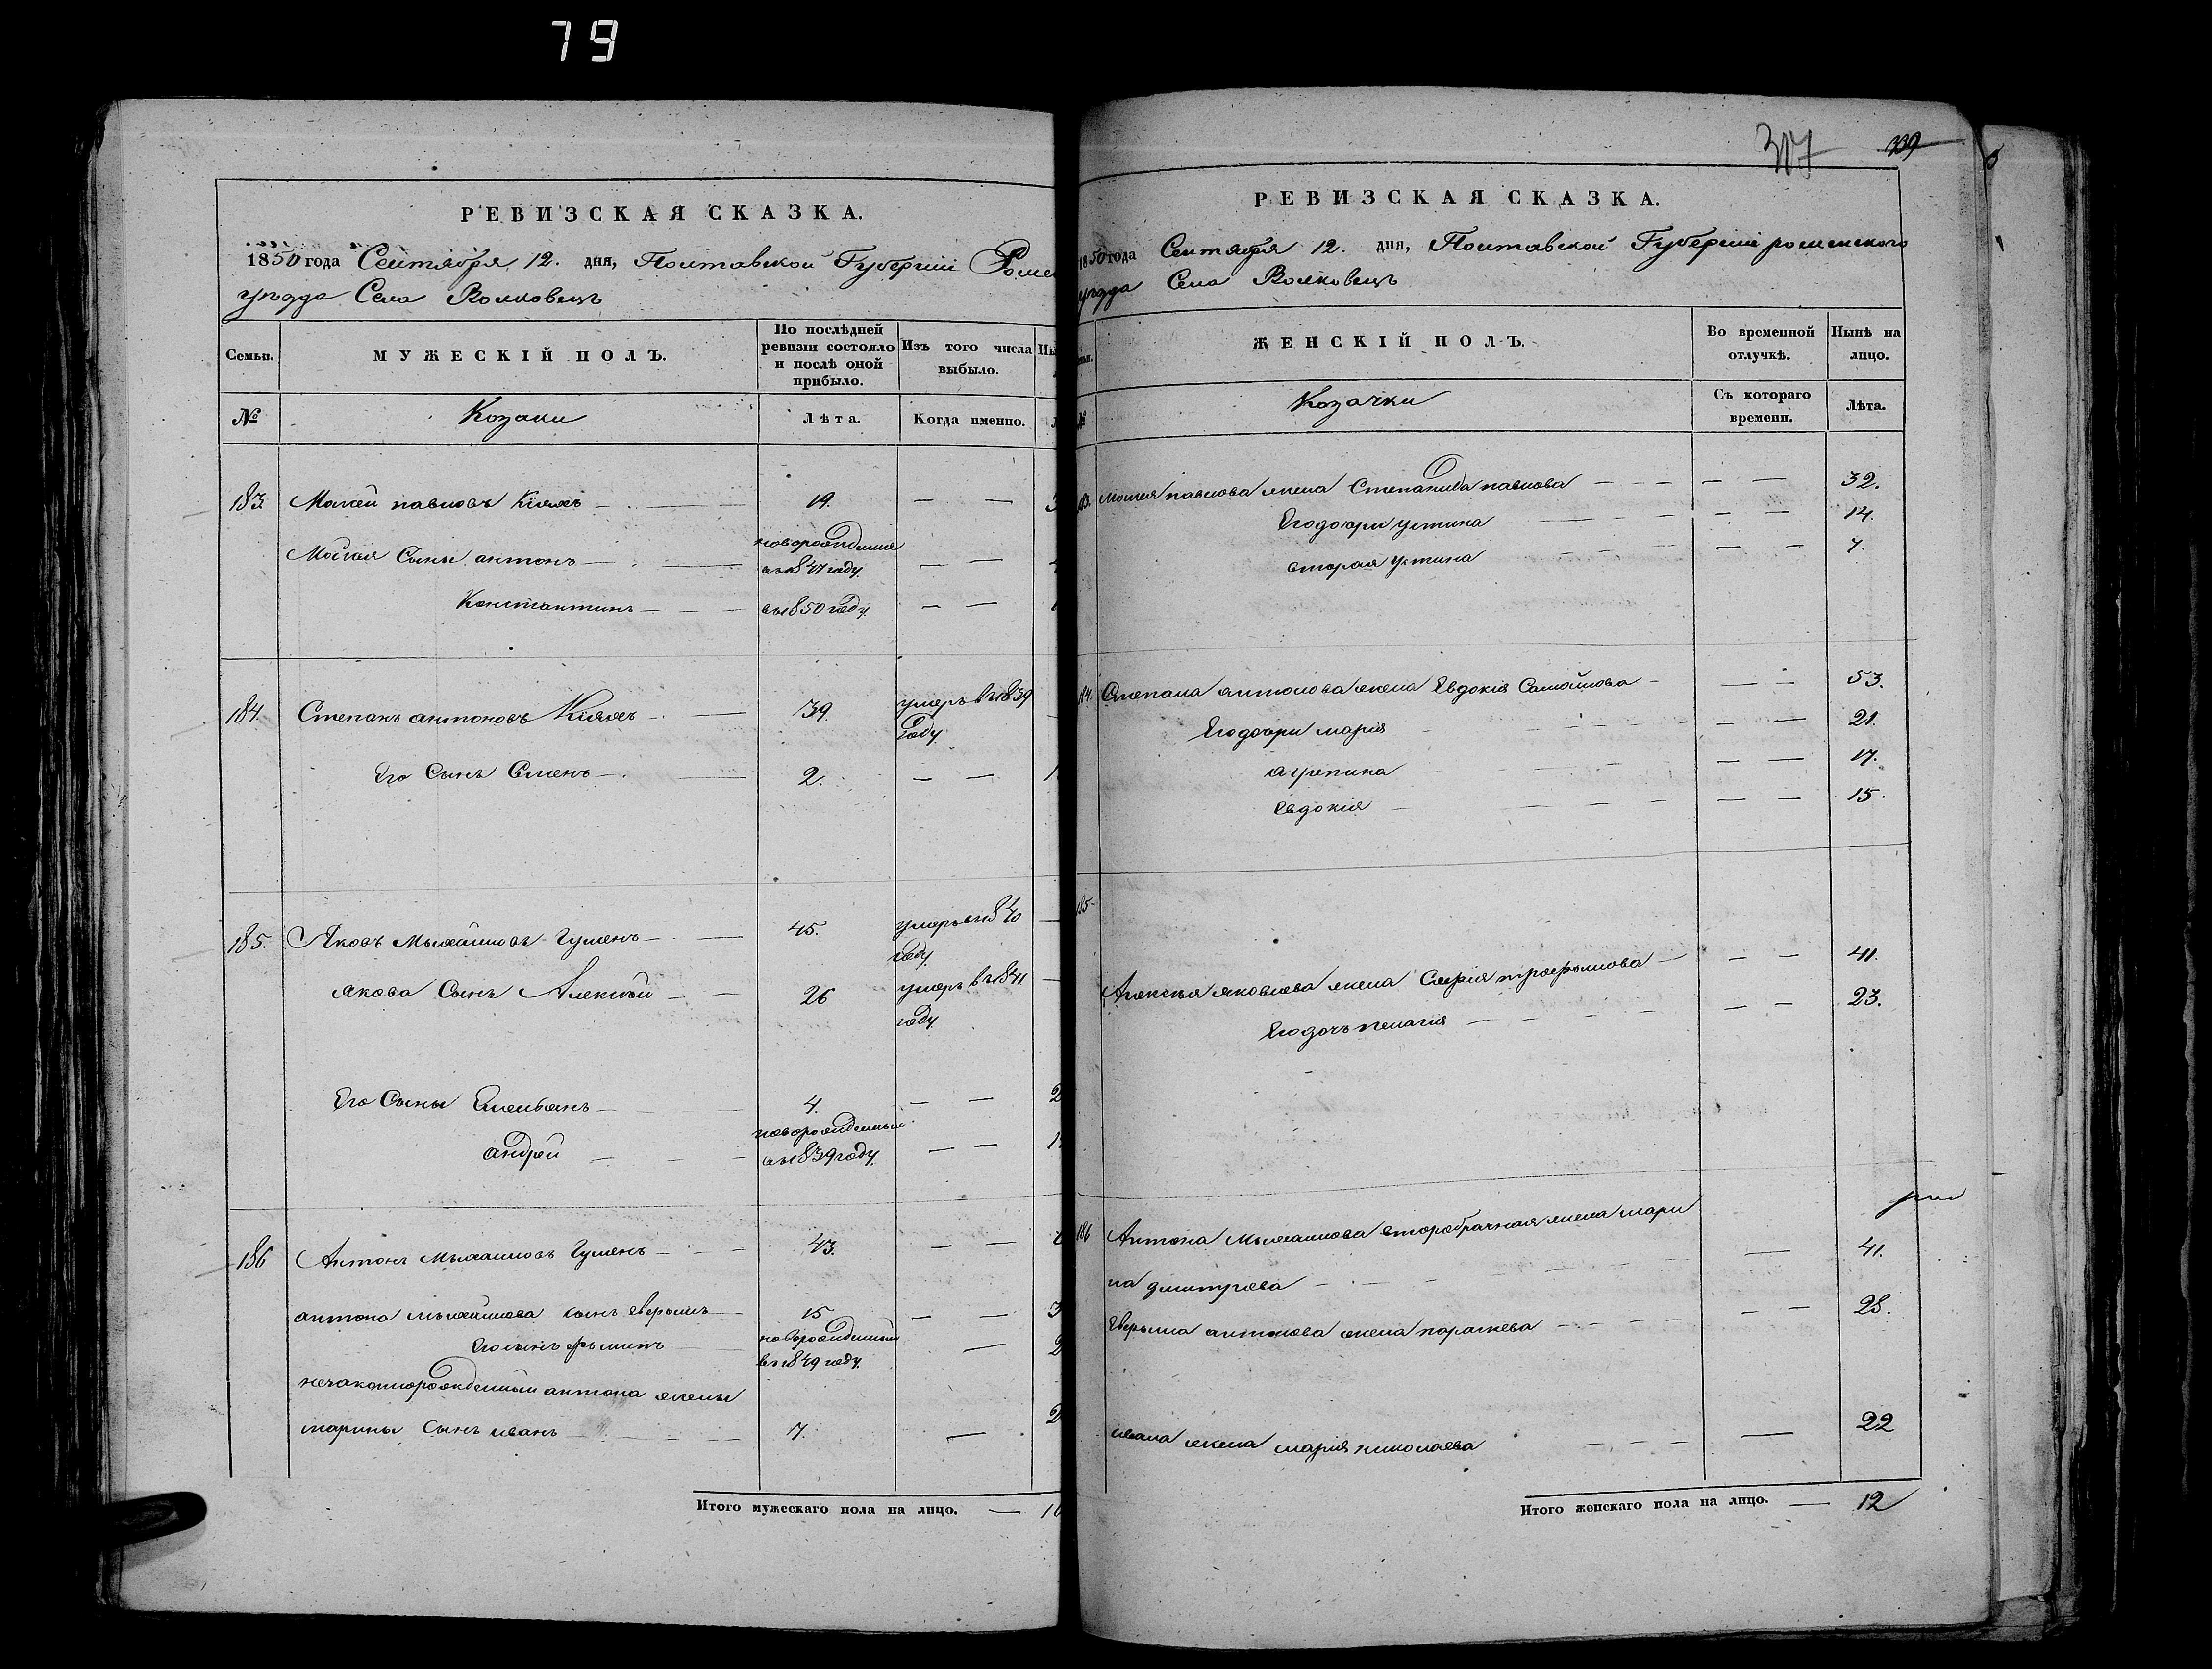 79
РЕВИЗСКАЯ СКАЗКА.
1850 года Сентября 12. дня, Полтавской Губерніи Роме
уѣзда Села Волковецъ
Семьи.
МУЖЕСКІЙ ПОЛЪ.
По послѣдней ревизіи состояло и послѣ оной прибыло.
Изъ того числа выбыло.
№
Козаки
Лѣта.
Когда именно.
183. павловъ 19. — —
Сыны антонъ — новорожденные въ 1847 году — —
Константинъ — въ 1850 году — —
184. Степанъ антоновъ — 39. умеръ въ 1839 году
Его Сынъ Семенъ — 2. — —
185. Яковъ Гуменъ — 45. умеръ въ 1840 году
Якова Сынъ Алексѣй — 26 умеръ въ 1841 году
Его Сыны — 4. — —
андрей — новорожденный въ 1839 году — —
186 Антонъ Гуменъ — 43. — —
антона сынъ — 15 — —
Его сынъ — новорожденный въ 1849 году —
антона жены
марины Сынъ иванъ — 7. —
Итого мужескаго пола на лицо. — 1
339
РЕВИЗСКАЯ СКАЗКА.
1850 года Сентября 12. дня, Полтавской Губерніи роменского
уѣзда Села Волковецъ
ЖЕНСКІЙ ПОЛЪ.
Во временной отлучкѣ.
Нынѣ на лицо.
№
Козачки
Съ котораго времени.
Лѣта.
183. павлова жена Степанида павлова — — 32.
Его дочри устина — — 14.
вторая устина — — 7.
184. Степана антонова жена Евдокія Самойлова — — 53.
Его дочри марія — — 21.
агрепина — — 17.
Евдокія — — 15.
185
Алексѣя яковлева жена — — 41.
Его дочь пелагія — — 23.
186 Антона второбрачная жена мари
на дмитрева — 41.
антонова жена параскева — — 28.
ивана жена марія николаева — 22
Итого женскаго пола на лицо. — 12